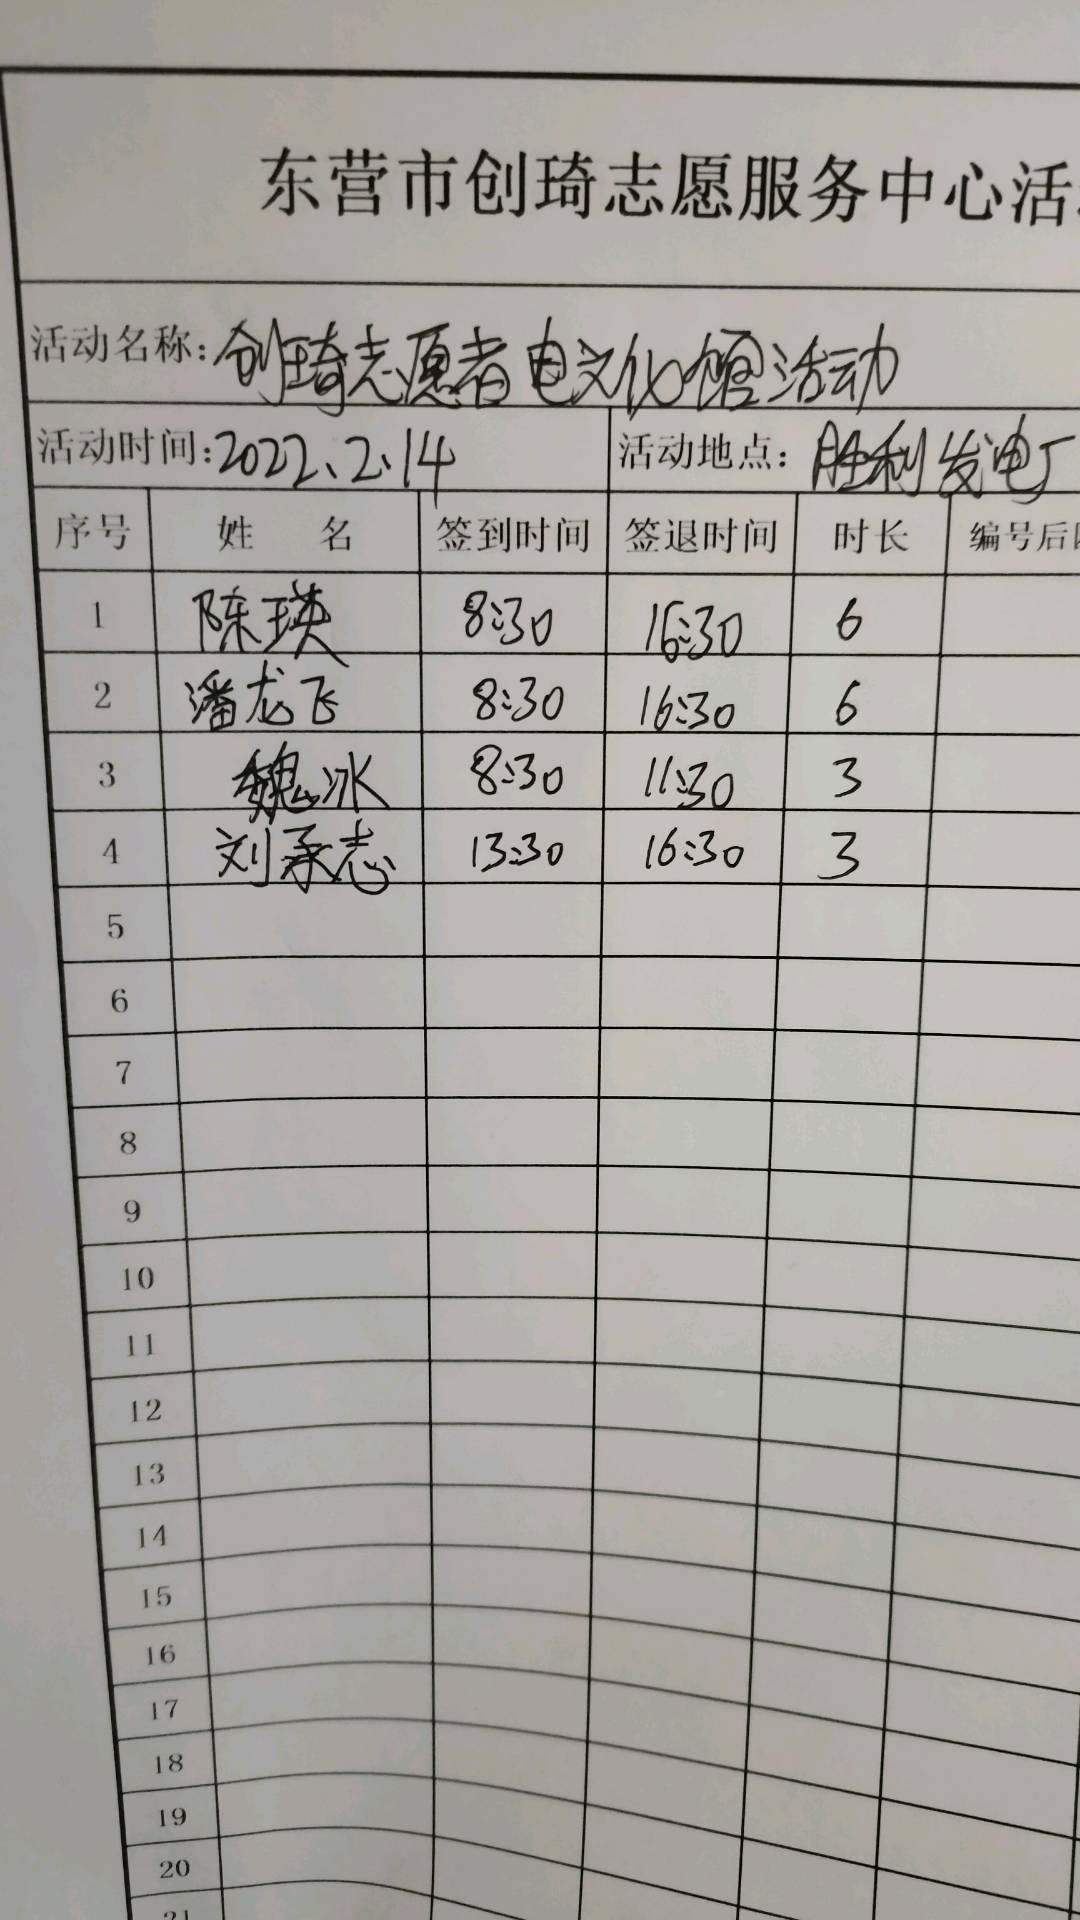 东营市创琦志愿服务中心活
活动名称:创琦志愿者电文化馆活动
活动时间:2022.2.14 活动地点:胜利发电厂
序号 姓 名 签到时间 签退时间 时长 编号后
1 陈瑛 8:30 16:30 6
2 潘龙飞 8:30 16:30 6
3 魏冰 8:30 11:30 3
4 刘承志 13:30 16:30 3
5
6
7
8
9
10
11
12
13
14
15
16
17
18
19
20
21